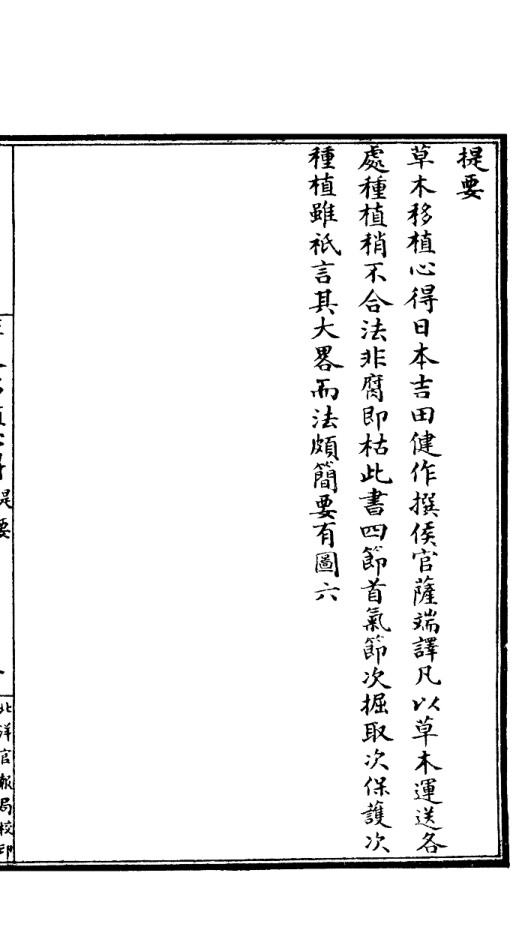 提要
草木移植心得日本吉田健作撰侯官薩端譯凡以草木運送各
處種植稍不合法非腐即枯此書四節首氣節次掘取次保護次
種植雖祇言其大畧而法頗簡要有圖六
提要
北洋官報局校印